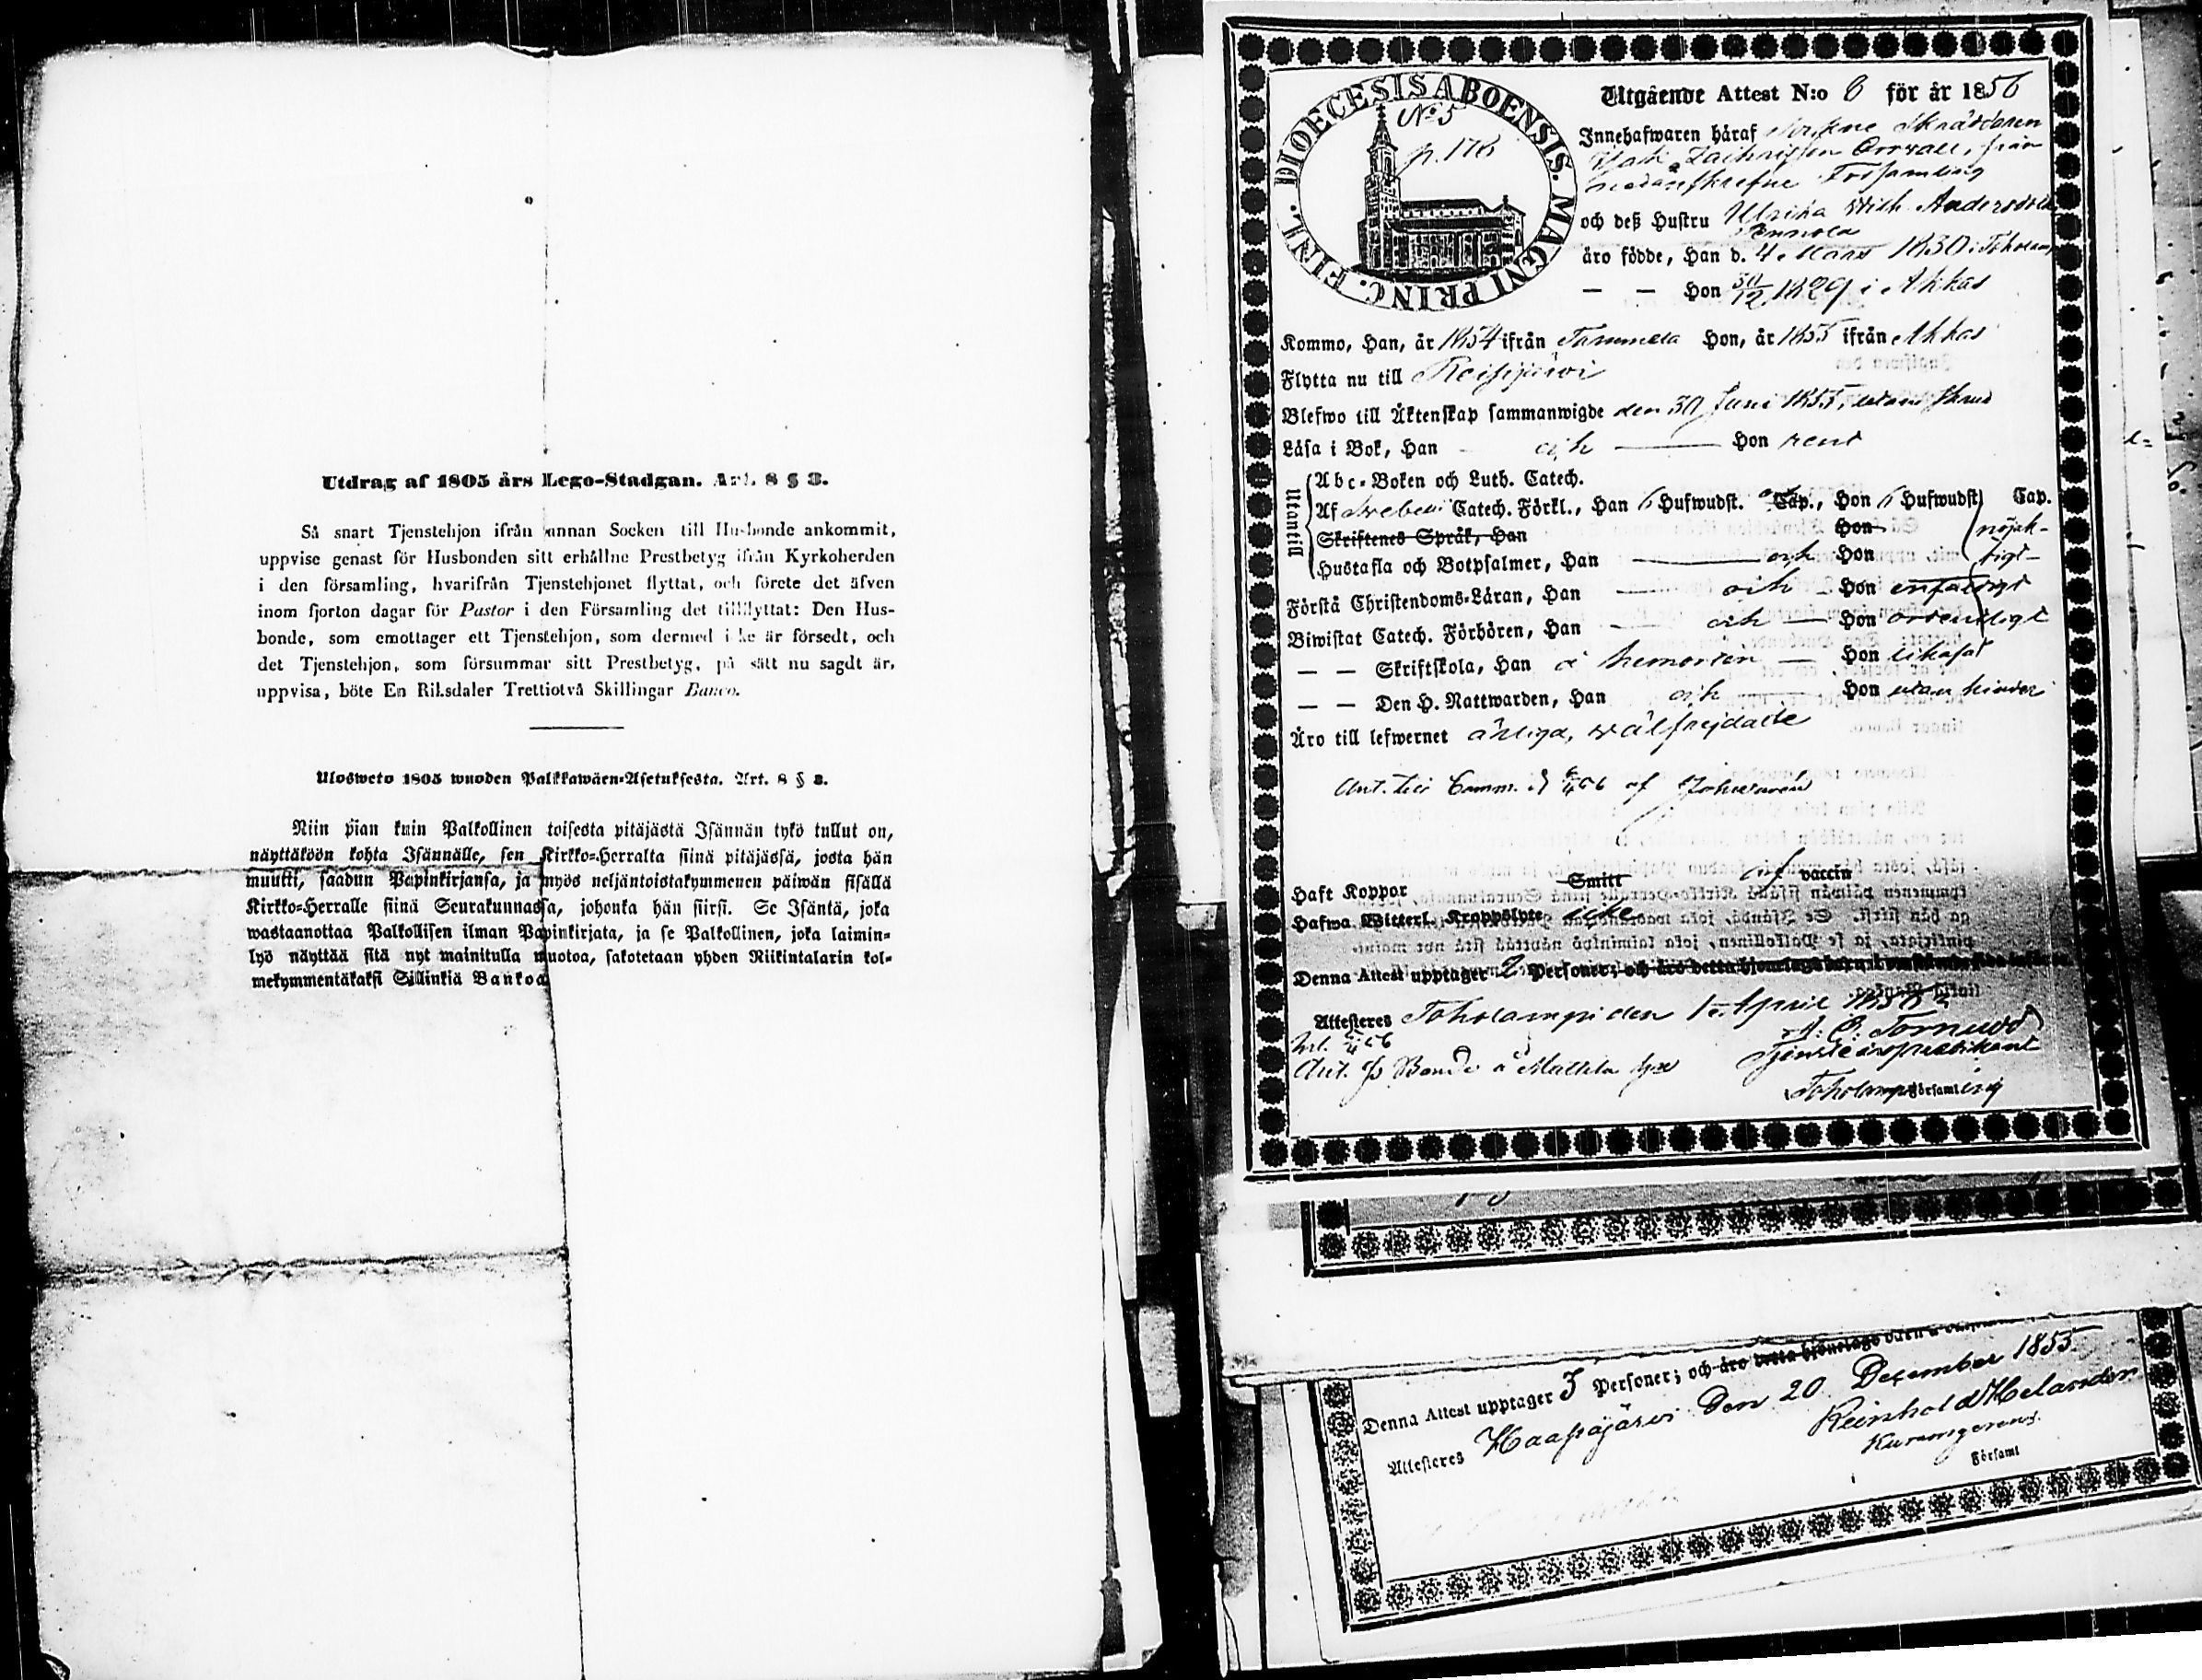 Utdrag af 1805 års Lego-Stadgan. Art. 8 § 3.
Så snart Tjenstehjon ifrån annan Socken till Husbonde ankommit,
uppvise genast för Husbonden sitt erhållne Prestbetyg ifrån Kyrkoherden
i den församling, hvarifrån Tjenstehjonet flyttat, och förete det äfven
inom fjorton dagar för Pastor i den Församling det tillflyttat: Den Hus-
bonde, som emottager ett Tjenstehjon, som dermed icke är försedt, och
det Tjenstehjon, som försummar sitt Prestbetyg, på sätt nu sagdt är,
uppvisa, böte En Riksdaler Trettiotvå Skillingar Banco.
Ulosweto 1805 wuoden Palkkawäen-Asetuksesta. Art. 8 § 3.
Niin pian kuin Palkollinen toisesta pitäjästä Isännän tykö tullut on,
näyttäköön kohta Isännälle, sen Kirkko-Herralta siinä pitäjässä, josta hän
muutti, saadun Papinkirjansa, ja myös neljäntoistakymmenen päiwän sisällä
Kirkko-Herralle siinä Seurakunnassa, johonka hän siirsi. Se Isäntä, joka
wastaanottaa Palkollisen ilman Papinkirjata, ja se Palkollinen, joka laimin-
lyö näyttää sitä nyt mainitulla muotoa, sakotetaan yhden Riikintalarin kol-
mekymmentäkaksi Sillinkiä Bankoa.
DIOECESIS ABOENSIS. MAGNI PRINC. FINL.
No 5
p. 176
Utgående Attest N:o 6 för år 1856
Innehafwaren häraf Skräddaren
Zachrisson Orrvall, från
nedanskrefne Församling
och deß Hustru Ulrika Andersdotter
äro födde, Han d. 4 Mars 1830 i Toholampi
— — Hon 30/12 1829 i Akkas
Kommo, Han, år 1854 ifrån Tammela Hon, år 1855 ifrån Akkas
Flytta nu till Reisjärvi
Blefwo till Äktenskap sammanwigde den 30 Juni 1855, utan
Läsa i Bok, Han — och — Hon rent
Utantill
Abc-Boken och Luth. Catech.
Af Svebelii Catech. Förkl., Han 6 Hufwudst. och Cap., Hon 6 Hufwudst. Cap.
Skriftenes Språk, Han Hon nöjak-
Hustafla och Botpsalmer, Han — och Hon tigt
Förstå Christendoms-Läran, Han — och — Hon enfaldigt
Biwistat Catech. Förhören, Han — och — Hon ordentligt
— — Skriftskola, Han — Hon likaså
— — Den H. Nattwarden, Han och — Hon utan hinder
Äro till lefwernet ärliga, wälfrejdade
Haft Koppor Smitt vaccin
Hafwa Witterl. Kroppslyte icke
Denna Attest upptager 2 Personer; och äro detta
Attesteres Toholampi den 1 April 1856
Tornudd
Toholampi Församling
Denna Attest upptager 3 Personer; och äro detta
Attesteres Haapajärvi Den 20 December 1855
Reinhold Helander
Församl